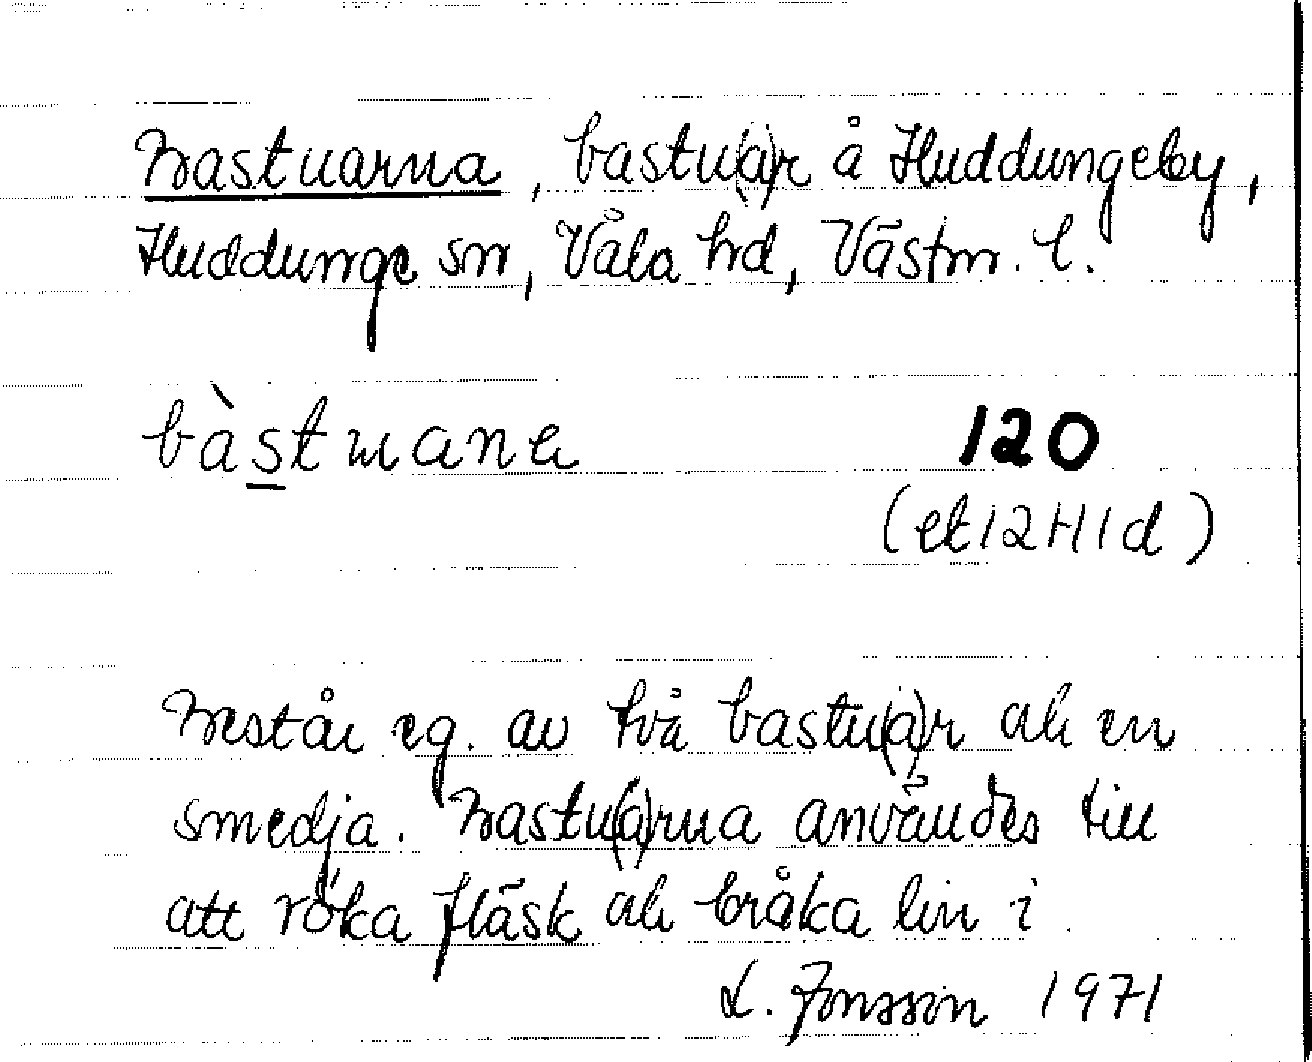 Bastuarna, bastu(a)r å Huddungeby,
Huddunge sn, Våla hd, Västm. l.
bàstuana
120
(ek 12H1d)
Består eg. av två bastu(a)r och en
smedja. Bastu(a)rna användes till
att röka fläsk och bråka lin i
L. Jonsson 1971